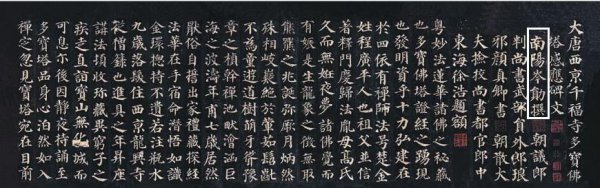 大唐西京千福寺多寶佛
塔感應碑文
南陽岑勛撰 朝議郎
判尚書武部員外郎琅
邪顏真卿書 朝散大
夫撿校尚書都官郎中
東海徐浩題額
粵妙法蓮華諸佛之秘藏
也多寶佛塔證經之踴現
也發明資乎十力弘建在
於四依有禪師法号楚金
姓程廣平人也祖父並信
著釋門慶歸法胤母高氏
久而無妊夜夢諸佛覺而
有娠是生龍象之徵無取
熊羆之兆誕弥厥月炳然
殊相岐嶷絕於葷茹髫齔
不為童遊道樹萌牙聳豫
章之楨幹禪池畎澮涵巨
海之波濤年甫七歲居然
厭俗自誓出家禮藏探經
法華在手宿命潛悟如識
金環揔持不遺若注瓶水
九歲落髮住西京龍興寺
從僧籙也進具之年昇座
講法頓收珍藏異窮子之
疾走直詣寶山無化城而
可息尓後因靜夜持誦至
多寶塔品身心泊然如入
禪定忽見寶塔宛在目前